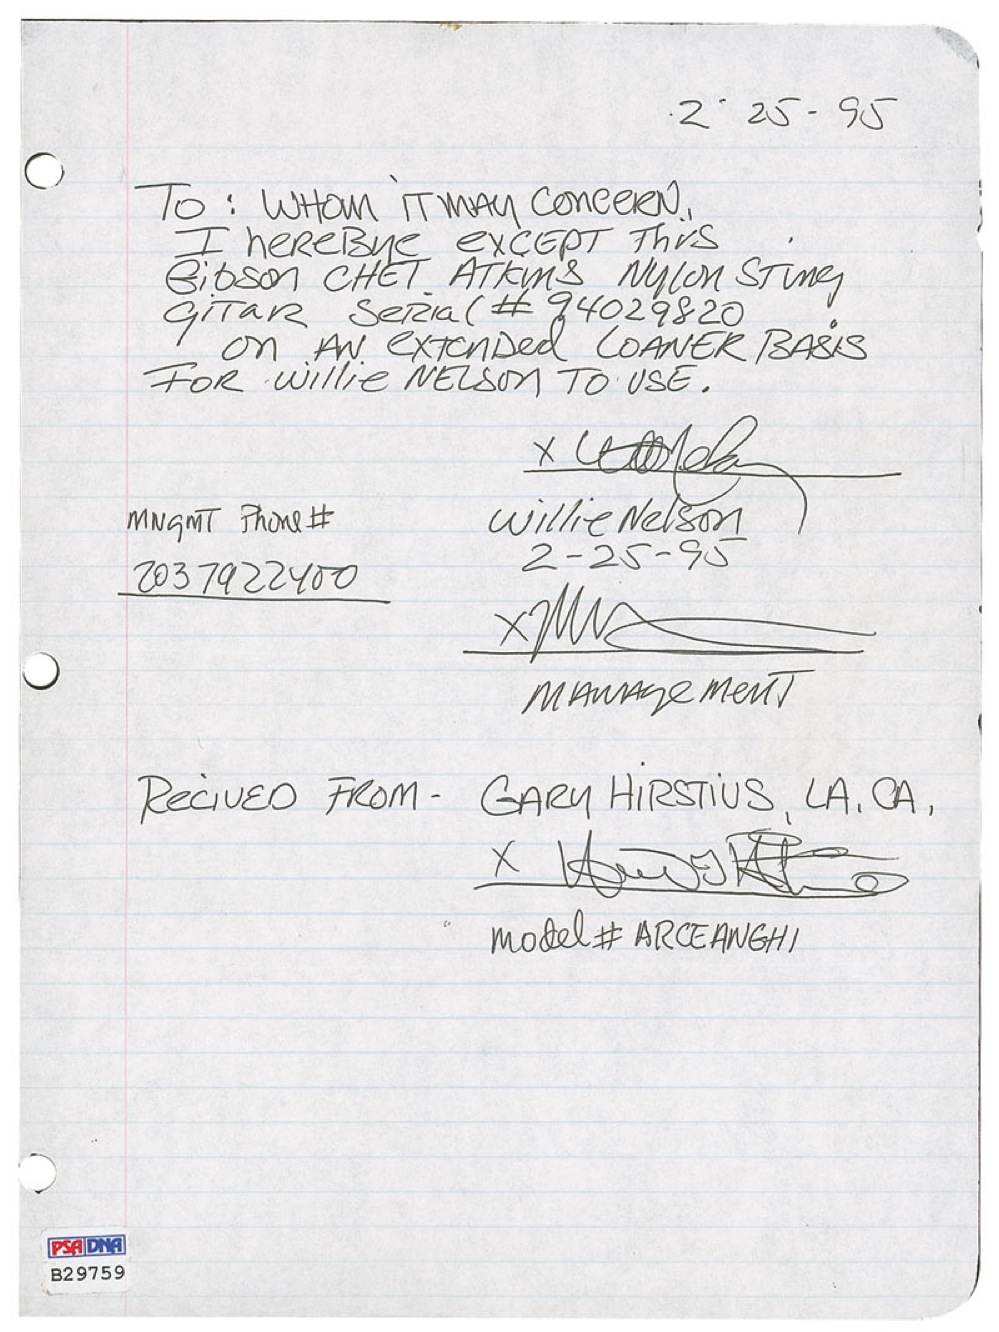 2-25-95
To: WHOM IT MAY CONCERN,
I HEREBYE EXCEPT THIS
Gibson CHET ATKINS NYLON STING
GITAR SERIAL # 94029820
ON AN EXTENDED LOANER BASIS
FOR WILLIE NELSON TO USE.
X
MNGMT Phone #
Willie Nelson
2-25-95
2037922400
X
MANAGEMENT
RECIVED FROM - GARY HIRSTIUS, LA. CA.
X
Model # ARCEANGH1
PSA DNA
B29759